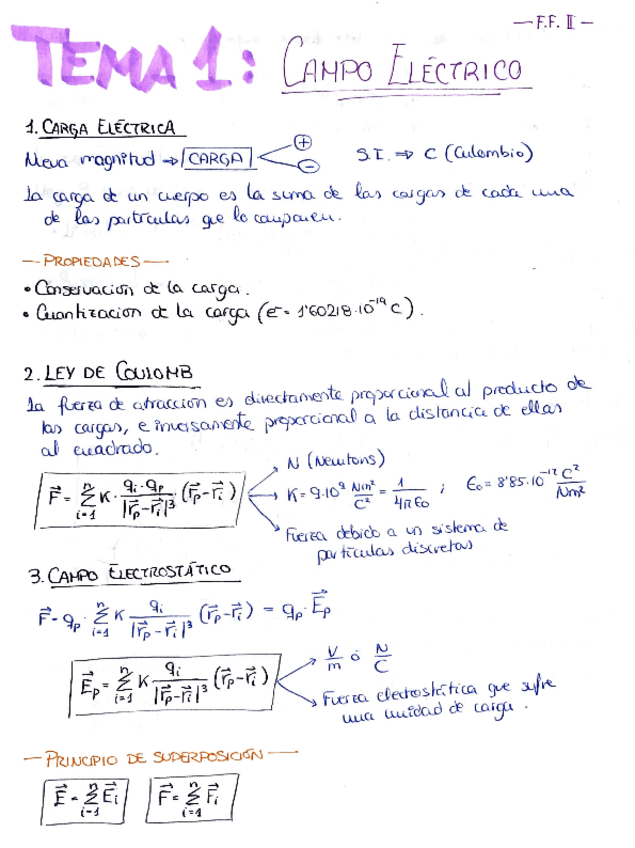 — F.F. II —
TEMA 1: CAMPO ELÉCTRICO
1. CARGA ELÉCTRICA
Nueva magnitud → CARGA + - S.I. ⇒ C (Culombio)
La carga de un cuerpo es la suma de las cargas de cada una
de las partículas que lo componen.
— PROPIEDADES —
• Conservación de la carga.
• Cuantización de la carga (e⁻ = 1'60218·10⁻¹⁹ C).
2. LEY DE COULOMB
La fuerza de atracción es directamente proporcional al producto de
las cargas, e inversamente proporcional a la distancia de ellas
al cuadrado.
N (Newtons)
F⃗ = Σ_{i=1}^{n} K · (q_i · q_p)/|r⃗_p - r⃗_i|³ (r⃗_p - r⃗_i) → K = 9·10⁹ Nm²/C² = 1/(4πε₀) ; ε₀ = 8'85·10⁻¹² C²/Nm²
Fuerza debido a un sistema de
partículas discretas
3. CAMPO ELECTROSTÁTICO
F⃗ = q_p · Σ_{i=1}^{n} K q_i/|r⃗_p - r⃗_i|³ (r⃗_p - r⃗_i) = q_p · E⃗_p
V/m ó N/C
E⃗_p = Σ_{i=1}^{n} K q_i/|r⃗_p - r⃗_i|³ (r⃗_p - r⃗_i)
Fuerza electrostática que sufre
una unidad de carga.
— PRINCIPIO DE SUPERPOSICIÓN —
E⃗ = Σ_{i=1}^{n} E⃗_i F⃗ = Σ_{i=1}^{n} F⃗_i